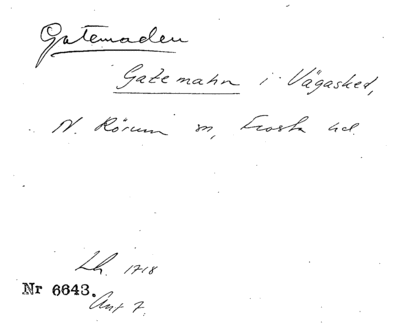 Gatemaden
Gatemahn i Vägasked,
N. Rörum sn, Frosta hd.
Lh. 1718
Nr 6643.
Ant 7.